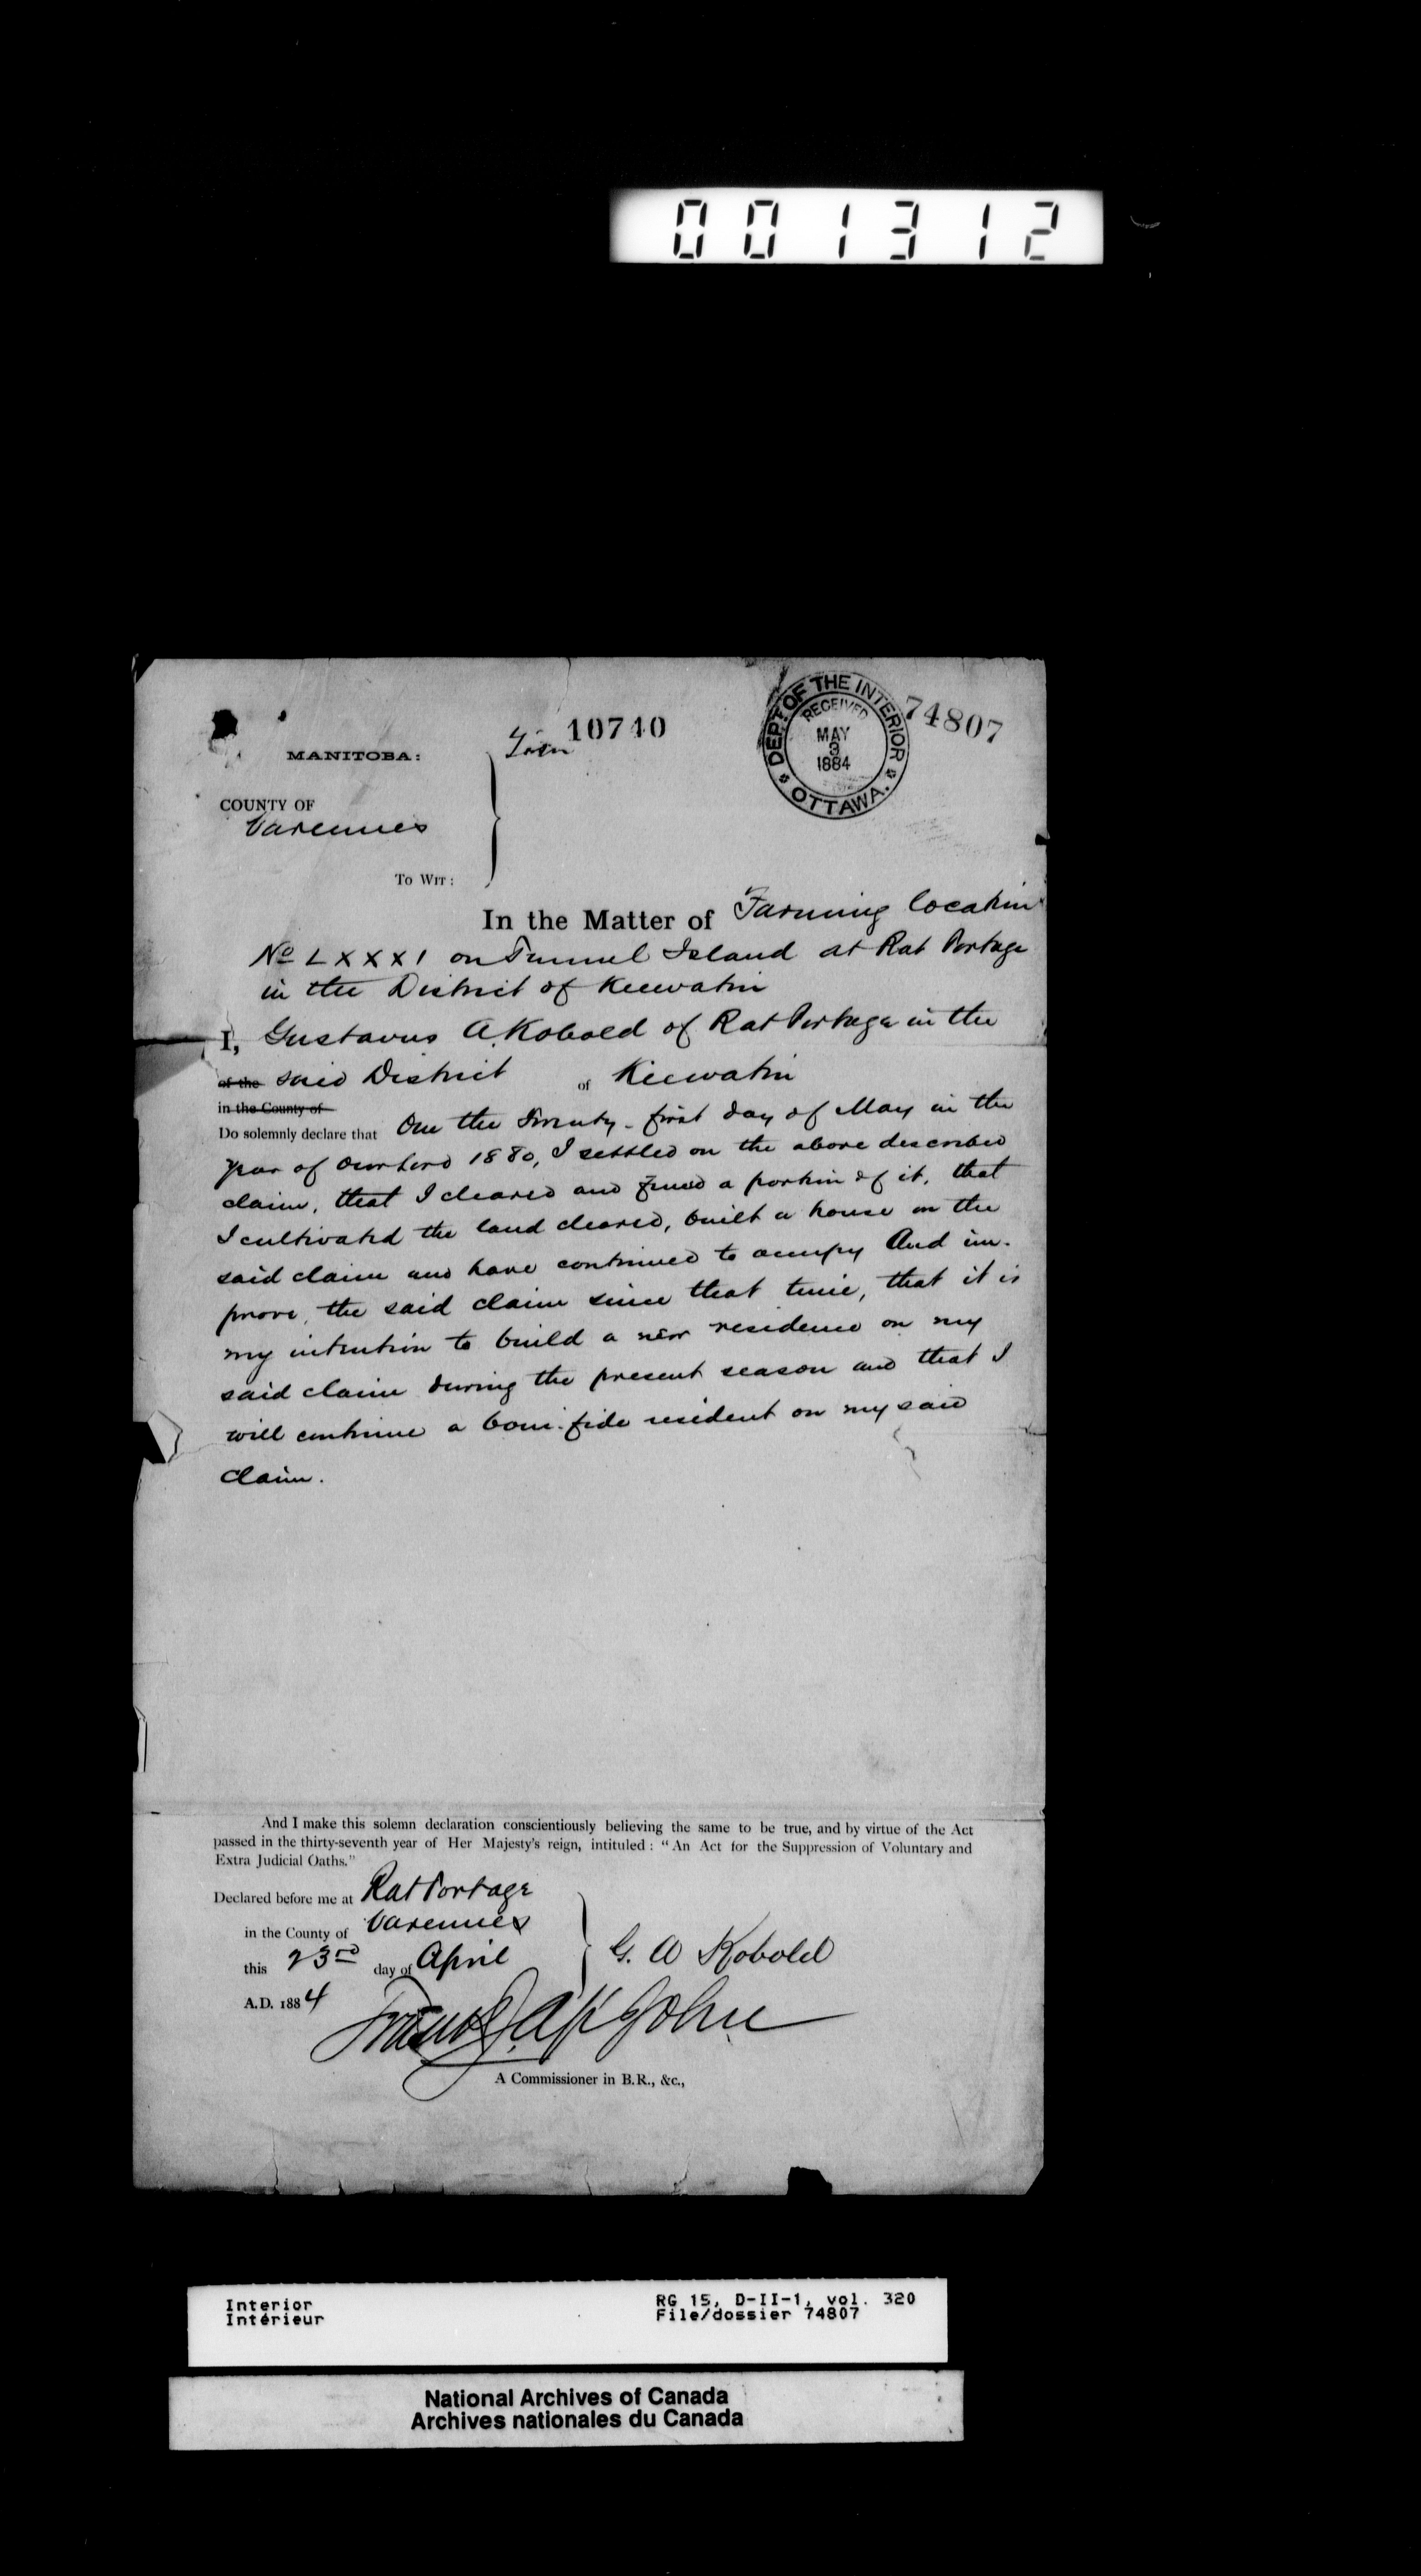 001312
10740
DEPT. OF THE INTERIOR
RECEIVED
MAY
3
1884
OTTAWA.
74807
MANITOBA:
COUNTY OF
Varennes
To Wit:
In the Matter of Farming location
No LXXXI on Tunnel Island at Rat Portage
in the District of Keewatin
I, Gustavus A. Kobold of Rat Portage in the
of the said District of Keewatin
in the County of
Do solemnly declare that On the Twenty-first day of May in the
year of our Lord 1880, I settled on the above described
claim, that I cleared and fenced a portion of it, that
I cultivated the land cleared, built a house on the
said claim and have continued to occupy And im-
prove, the said claim since that time, that it is
my intention to build a new residence on my
said claim during the present season and that I
will continue a boni-fide resident on my said
claim.
And I make this solemn declaration conscientiously believing the same to be true, and by virtue of the Act
passed in the thirty-seventh year of Her Majesty's reign, intituled: "An Act for the Suppression of Voluntary and
Extra Judicial Oaths."
Declared before me at Rat Portage
in the County of Varennes
this 23rd day of April
A.D. 1884
G. A Kobold
A Commissioner in B.R., &c.,
Interior
Intérieur
RG 15, D-II-1, vol. 320
File/dossier 74807
National Archives of Canada
Archives nationales du Canada